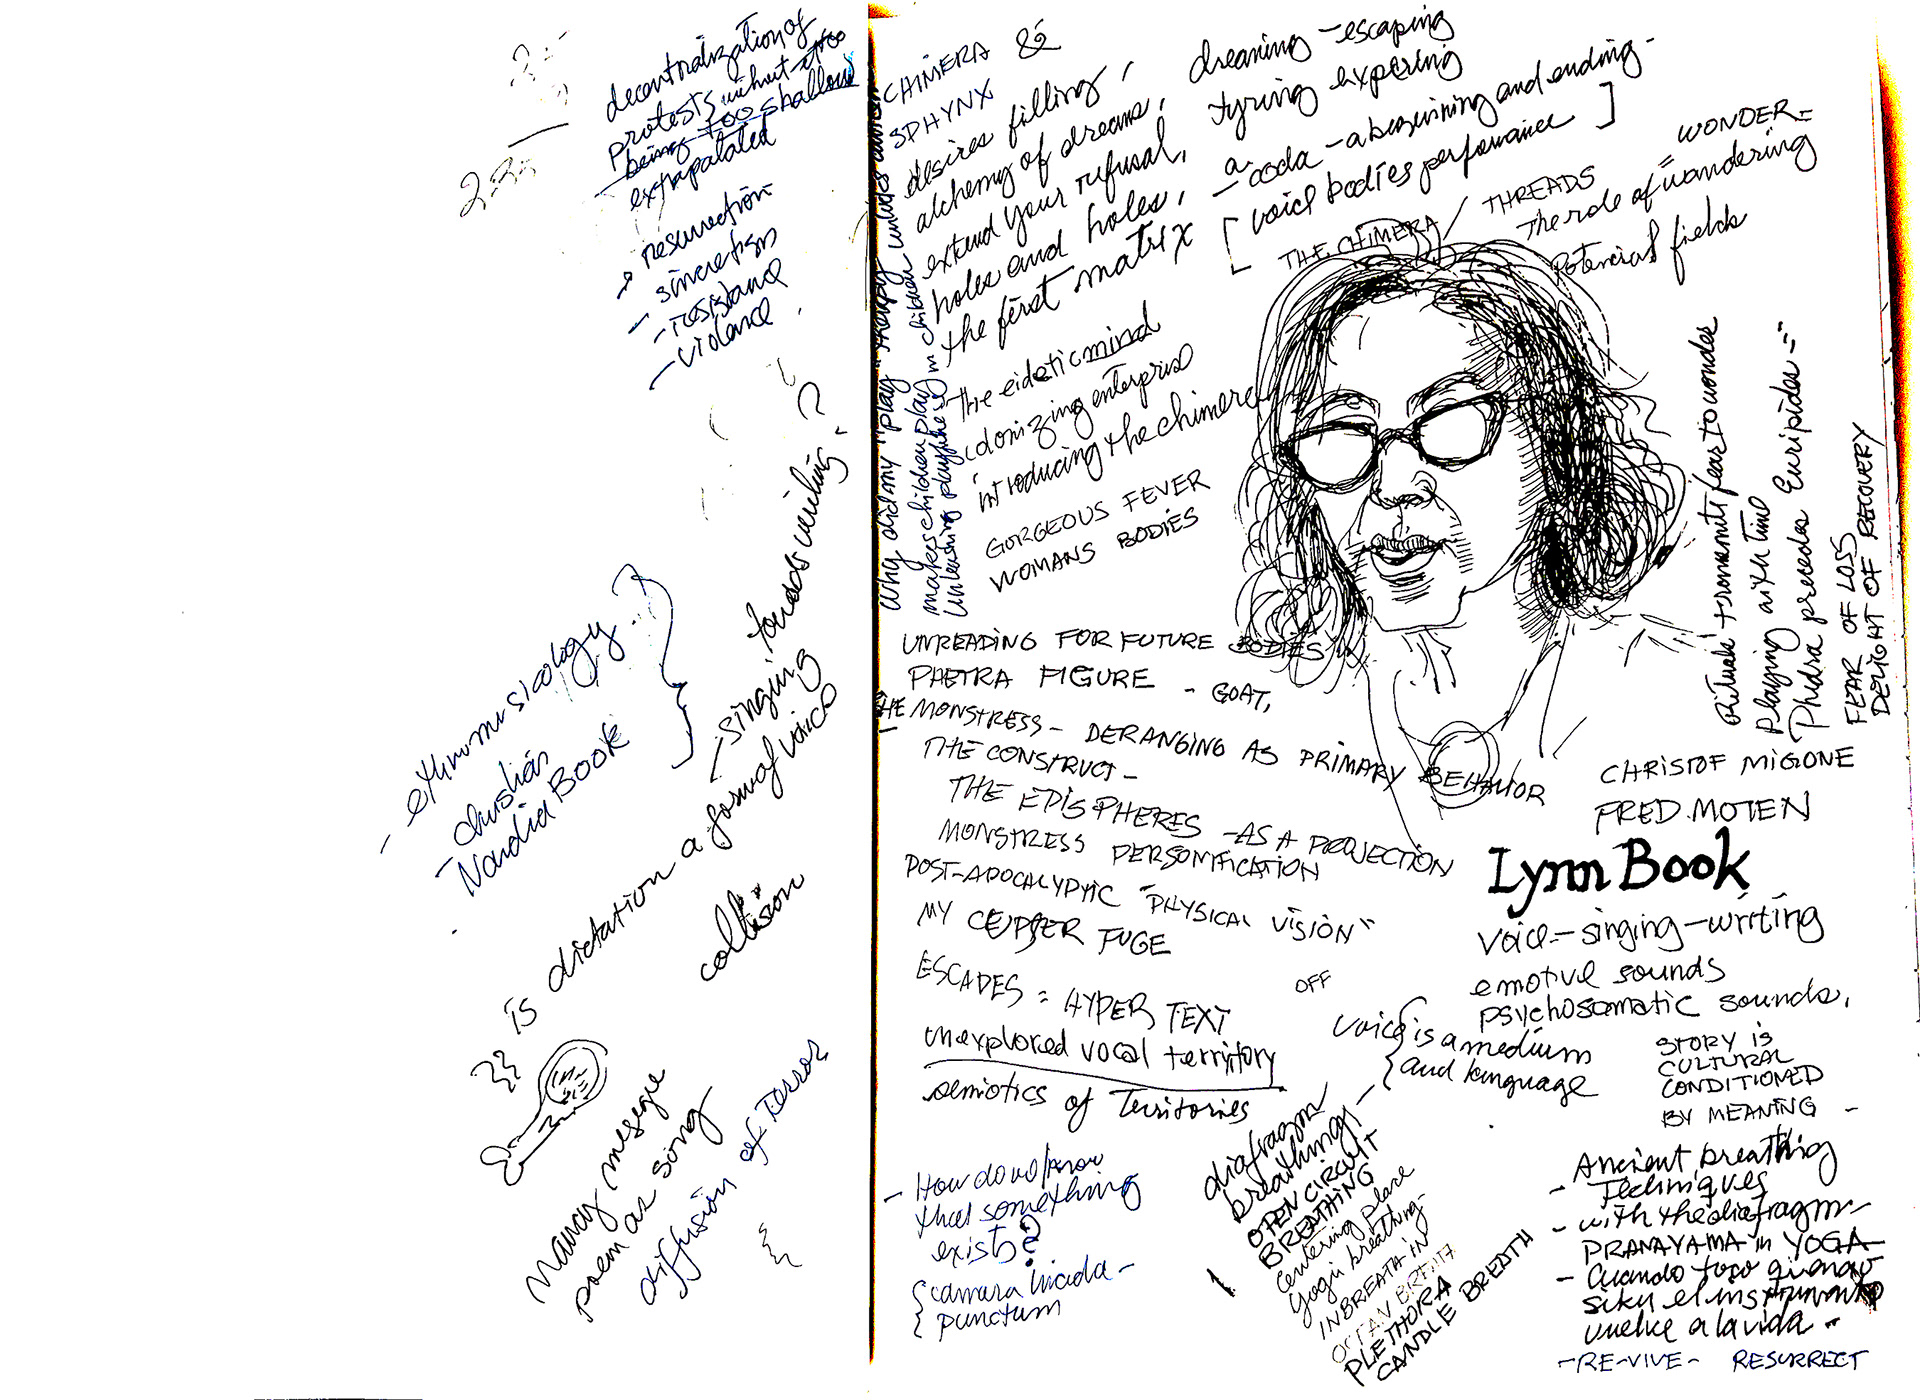 decentralization of
protests without too
being too shallow
extrapalated
resurrection
sincretism
- resistance
- violence
towards writing?
- singing
is dictation a form of voice
collision
- ethnomusicology
- Nardia Book
poem as song
diffusión of Terror
CHIMERA &
SPHYNX
desires filling,
alchemy of dreams,
extend your refusal,
holes and holes,
the first matrix
dreaming - escaping
tyring expering
a coda - a beginning and ending -
[voice bodies perfomance]
THE CHIMERA / THREADS
WONDER =
The role of = wandering
Potencial fields
why did my "play"
makes children play in children
unleashing playfulness
The eidetic mind
colonizing enterprise
introducing the chimera
GORGEOUS FEVER
WOMANS BODIES
Rituals transmits fear to wonder
playing with time
Phidra precedes Euripides -
FEAR OF LOSS
DELIGHT OF RECOVERY
UNREADING FOR FUTURE BODIES
PHETRA FIGURE - GOAT,
THE MONSTRESS - DERANGING AS PRIMARY BEHAVIOR
THE CONSTRUCT -
THE EPISPHERES - AS A PROJECTION
MONSTRESS PERSONIFICATION
POST-APOCALYPTIC "PHYSICAL VISION"
MY FUGE
ESCAPES = HYPER TEXT
OFF
unexplored vocal territory
semiotics of Territories
CHRISTOF MIGONE
FRED MOTEN
Lynn Book
voice - singing - writing
emotive sounds
psychosomatic sounds,
voice is a medium
and language
STORY IS
CULTURAL
CONDITIONED
BY MEANING -
- How do we know
that something
exists?
camara lucida -
punctum
diafragm
breathing,
OPEN CIRCUIT
BREATHING
centering place
yogi breathing -
INBREATH IN
PLETHORA
CANDLE BREATH
Ancient breathing
- Techniques
- with the diafragm -
PRANAYAMA in YOGA
- Cuando toco quena o
siku el instrumento
vuelve a la vida -
- RE-VIVE - RESURRECT